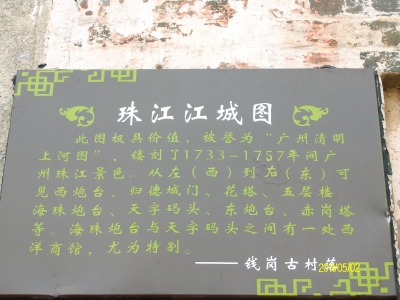 珠江江城图
此图极具价值，被誉为“广州清明
上河图”，镂刻了1733-1757年间广
州珠江景色。从左（西）到右（东）可
见西炮台、归德城门、花塔、五层楼
海珠炮台、天字码头、东炮台、赤岗塔
等。海珠炮台与天字码头之间有一处西
洋商馆，尤为特别。
——钱岗古村